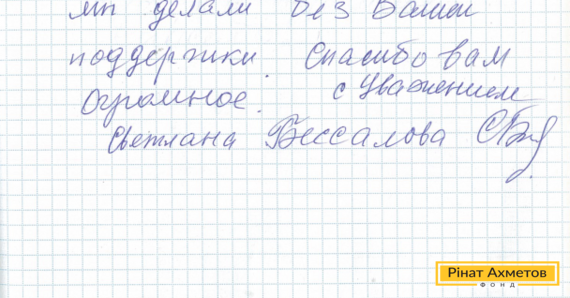 мы делали без Вашей
поддержки. Спасибо вам
Огромное. с Уважением
Светлана Бессалова
Рінат Ахметов
ФОНД